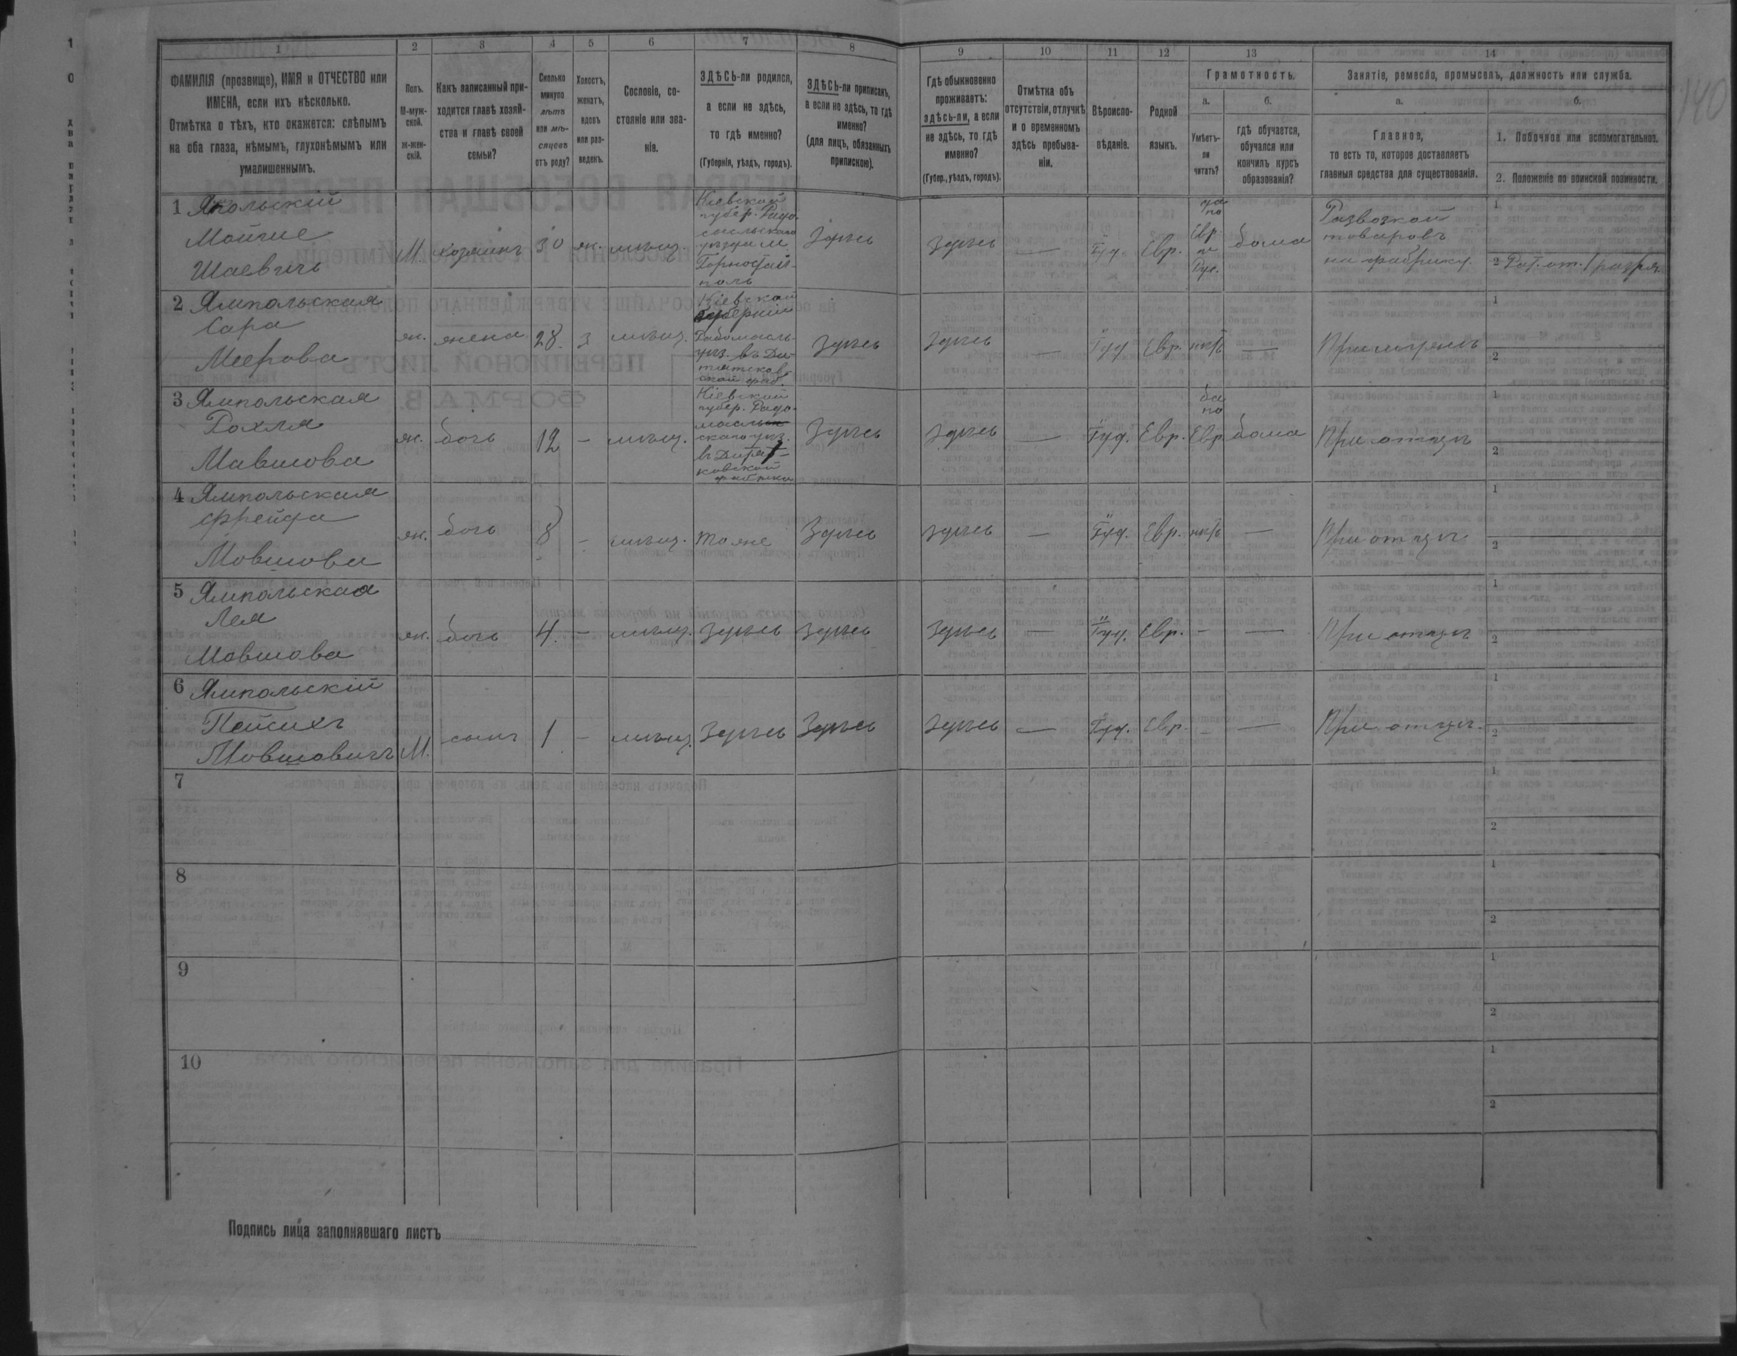 1 2 3 4 5 6 7 8 9 10 11 12 13 14
140
ФАМИЛІЯ (прозвище), ИМЯ и ОТЧЕСТВО или
ИМЕНА, если ихъ нѣсколько.
Отмѣтка о тѣхъ, кто окажется: слѣпымъ
на оба глаза, нѣмымъ, глухонѣмымъ или
умалишеннымъ.
Полъ.
М-муж-
ской.
Ж-жен-
скій.
Какъ записанный при-
ходится главѣ хозяй-
ства и главѣ своей
семьи?
Сколько
минуло
лѣтъ
или мѣ-
сяцевъ
отъ роду?
Холостъ,
женатъ,
вдовъ
или раз-
веденъ.
Сословіе, со-
стояніе или зва-
ніе.
ЗДѢСЬ-ли родился,
а если не здѣсь,
то гдѣ именно?
(Губернія, уѣздъ, городъ).
ЗДѢСЬ-ли приписанъ,
а если не здѣсь, то гдѣ
именно?
(для лицъ, обязанныхъ
припискою).
Гдѣ обыкновенно
проживаетъ:
здѣсь-ли, а если
не здѣсь, то гдѣ
именно?
(Губер., уѣздъ, городъ).
Отмѣтка объ
отсутствіи, отлучкѣ
и о временномъ
здѣсь пребыва-
ніи.
Вѣроиспо-
вѣданіе.
Родной
языкъ.
Грамотность.
а.
Умѣетъ-
ли
читать?
б.
гдѣ обучается,
обучался или
кончилъ курсъ
образованія?
Занятіе, ремесло, промыселъ, должность или служба.
а.
Главное,
то есть то, которое доставляетъ
главныя средства для существованія.
б.
1. Побочное или вспомогательное.
2. Положеніе по воинской повинности.
1 Ямпольскій
Шаевичъ
М. хозяинъ 30 ж. мѣщ.
Кіевской
губер. Радо-
Горностай-
поль
Здѣсь Здѣсь — Іуд. Евр.
да
по
Евр
и
Рус.
дома
Развозкой
товаровъ
на фабрику
1
2 Рат. от. 1 разря
2 Ямпольская
Сара
Меерова
ж. жена 28 з мѣщ.
Кіевской
губерніи
Здѣсь Здѣсь — Іуд Евр. нѣтъ —
1
2
3 Ямпольская
Рохля
Мавшова
ж. дочь 12 — мѣщ.
Кіевской
губер. Радо-
Здѣсь Здѣсь — Іуд. Евр.
да
по
Евр.
дома
При отцѣ
1
2
4 Ямпольская
Фрейда
Мовшова
ж. дочь 8 — мѣщ. тоже Здѣсь Здѣсь — Іуд. Евр. нѣтъ — При отцѣ
1
2
5 Ямпольская
Лея
Мовшова
ж. дочь 4 — мѣщ. Здѣсь Здѣсь Здѣсь — Іуд. Евр. — — При отцѣ
1
2
6 Ямпольскій
Пейсихъ
Мовшовичъ
М. сынъ 1 — мѣщ. Здѣсь Здѣсь Здѣсь — Іуд. Евр. — — При отцѣ.
1
2
7
1
2
8
1
2
9
1
2
10
1
2
Подпись лица заполнявшаго листъ